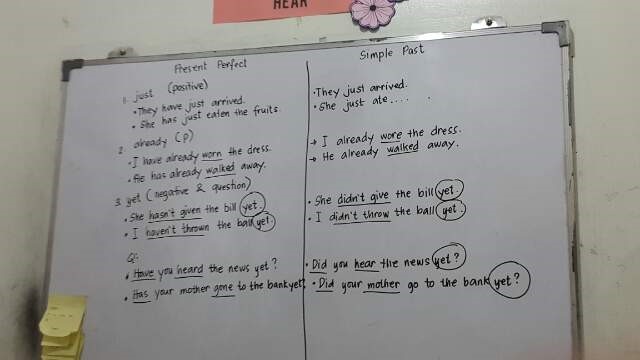 HEAR
Present Perfect
1. just (positive)
• They have just arrived.
• She has just eaten the fruits.
2. already (p)
• I have already worn the dress.
• He has already walked away.
3. yet (negative & question)
• She hasn't given the bill yet.
• I haven't thrown the ball yet.
Q:
• Have you heard the news yet?
• Has your mother gone to the bank yet?
Simple Past
• They just arrived.
• She just ate....
→ I already wore the dress.
→ He already walked away.
• She didn't give the bill yet.
• I didn't throw the ball yet.
• Did you hear the news yet?
• Did your mother go to the bank yet?